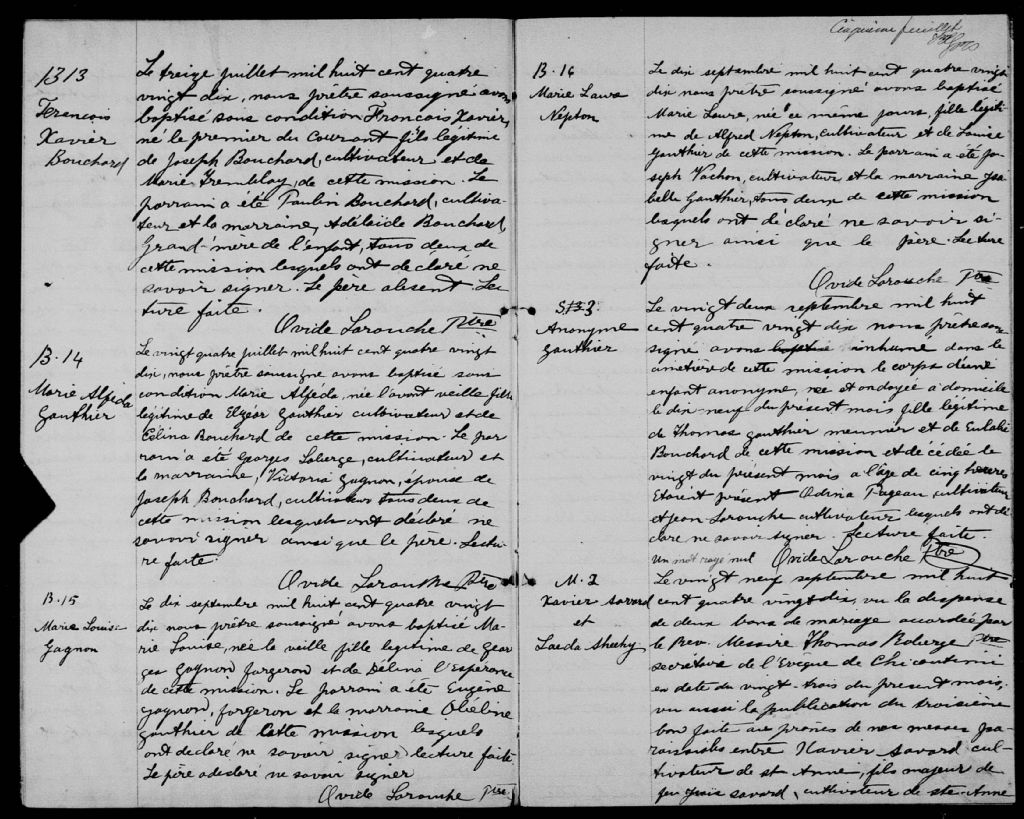 B13
Ferencois
Xavier
Bouchard
Le treize juillet mil huit cent quatre
vingt dix, nous prêtre soussigné avons
baptisé sous condition Francois Xavier,
né le premier du Courant fils légitime
de Joseph Bouchard, cultivateur et de
Marie Tremblay, de cette mission. Le
parrain a été Paulin Bouchard, cultiva-
teur et la marraine, Adélaide Bouchard,
Grand-mère de l'enfant, tous deux de
cette mission lesquels ont déclaré ne
savoir signer. Le père absent Lec-
ture faite.
Ovide Larouche Ptre
B.14
Marie Alfeda
Gauthier
Le vingt quatre juillet mil huit cent quatre vingt
dix, nous prêtre soussigné avons baptisé sous
condition Marie Alfeda, née l'avant veille fille
légitime de Elzear Gauthier cultivateur et de
Célina Bouchard de cette mission. Le par
rain a été Georges Laberge, cultivateur et
la marraine, Victoria Gagnon, épouse de
Joseph Bouchard, cultivateur tous deux de
cette mission lesquels ont déclaré ne
savoir signer ainsi que le père. Lectu-
re faite.
Ovide Larouche Ptre
B.15
Marie Louise
Gagnon
Le dix septembre mil huit cent quatre vingt
dix nous prêtre soussigné avons baptisé Ma-
rie Louise, née la veille fille légitime de Geor
ges Gagnon forgeron et de Délina l'Espérance
de cette mission. Le parrain a été Eugène
Gagnon, forgeron et la marraine Obeline
Gauthier de Cette mission lesquels
ont déclaré ne savoir signer lecture faite
Le père a declaré ne savoir signer
Ovide Larouche Ptre.
feuillet
B.16
Marie Laura
Nepton
Le dix septembre mil huit cent quatre vingt
dix nous prêtre soussigné avons baptisé
Marie Laure, née ce même jours, fille légiti
me de Alfred Nepton, cultivateur et de Louise
Gauthier de cette mission. Le parrain a été Jo
seph Vachon, cultivateur et la marraine Isa
belle Gauthier, tous deux de cette mission
lesquels ont déclaré ne savoir si-
gner ainsi que le père. Lecture
faite.
Ovide Larouche Ptre
Anonyme
Gauthier
Le vingt deux septembre mil huit
cent quatre vingt dix nous prêtre sous
signé avons baptisé inhumé dans le
cimetière de cette mission le corps d'une
enfant anonyme, née et ondoyée à domicile
le dix neuf du présent mois fille légitime
de Thomas Gauthier meunier et de Eulalie
Bouchard de cette mission et décédée le
vingt du présent mois a l'âge de cinq heures
Etaient présent Odina Pageau cultivateur
et Jean Larouche cultivateur lesquels ont dé
clare ne savoir signer. Lecture faite.
Un mot rayé nul Ovide Larouche Ptre
M.2
Xavier Savard
et
Laeda Sheehy
Le vingt neuf septembre mil huit
cent quatre vingt dix, vu la dispense
de deux bans de mariage accordée par
le Rev. Messire Thomas Roberge Ptre
secretaire de l'Evêque de Chicoutimi
en date du vingt-trois du présent mois,
vu aussi la publication du troisième
ban faite au prônes de nos messes pa-
roissiales entre Xavier Savard cul-
tivateur de st Anne, fils majeur de
feu Savard, cultivateur de ste-Anne